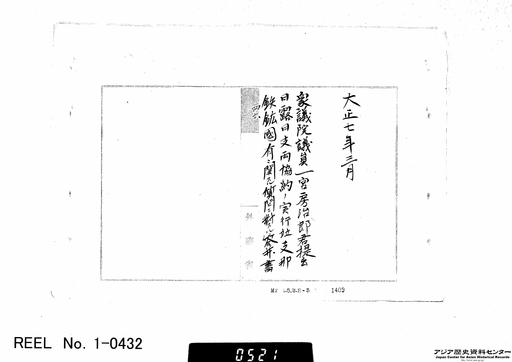 大正七年三月
衆議院議員一宮房治郎君提出
日露日支両協約ノ実行竝支那
鉄鉱国有ニ関スル質問ニ対スル答弁書
1402
REEL No. 1-0432
0521
アジア歴史資料センター
Japan Center for Asian Historical Records